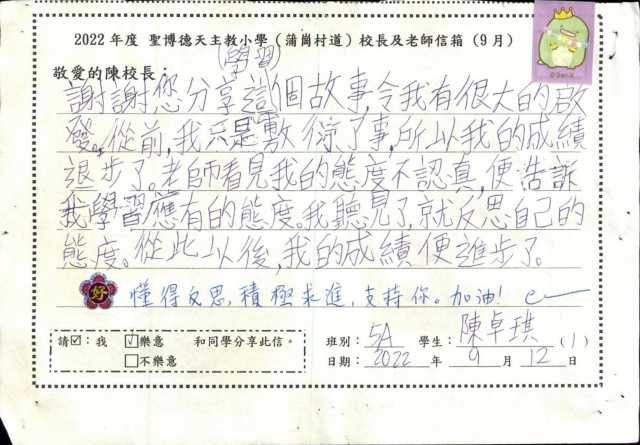 2022 年度 聖博德天主教小學(蒲崗村道)校長及老師信箱(9月)
敬愛的陳校長:
(學習)
謝謝您分享這個故事,令我有很大的啟
發。從前,我只是敷衍了事,所以我的成績
退步了。老師看見我的態度不認真,便告訴
我學習應有的態度。我聽見了,就反思自己的
態度。從此以後,我的成績便進步了。
好 懂得反思,積極求進,支持你。加油!
請☑:我 ☑樂意 和同學分享此信。
□不樂意
班別: 5A 學生: 陳卓琪 (1)
日期: 2022 年 9 月 12 日
©San-X